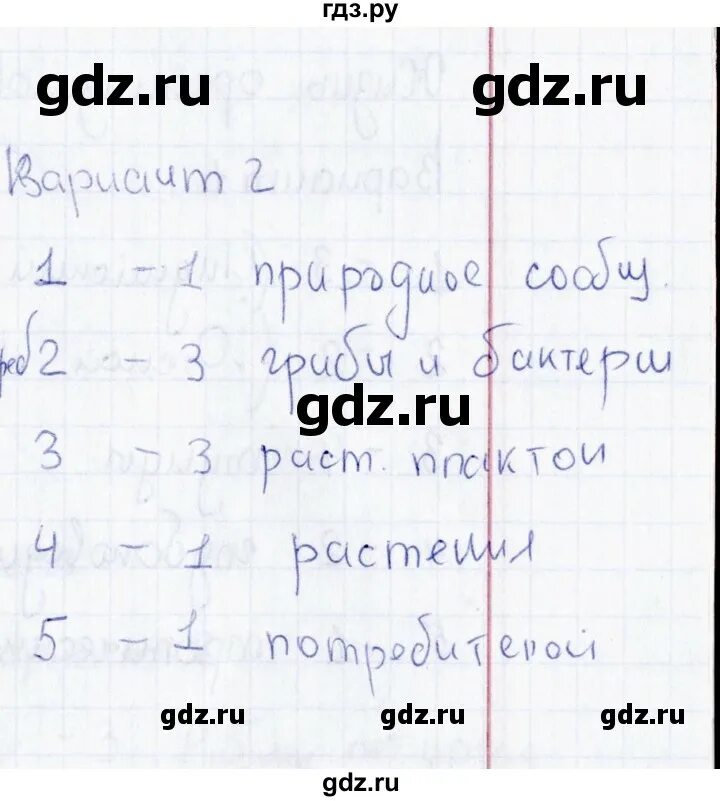 гдз.ру
gdz.ru gdz.ru
Вариант 2
1 - 1 природное сообщ.
2 - 3 грибы и бактерии
gdz.ru
3 - 3 раст. планктон
4 - 1 растения
5 - 1 потребителей
gdz.ru gdz.ru gdz.ru
gdz.ru